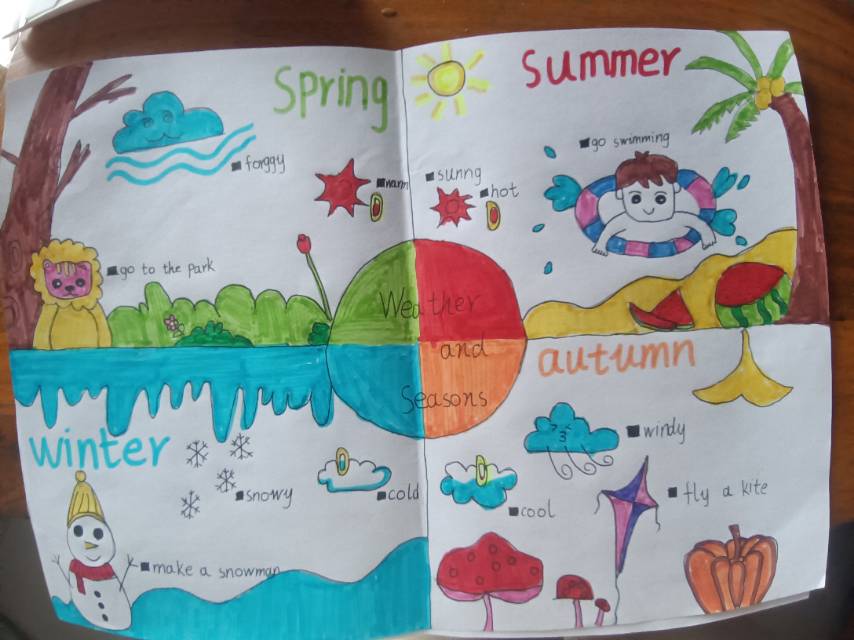 Spring
forggy
warm
go to the park
summer
sunng
hot
go swimming
Weather
and
Seasons
winter
snowy
cold
make a snowman
autumn
windy
cool
fly a kite